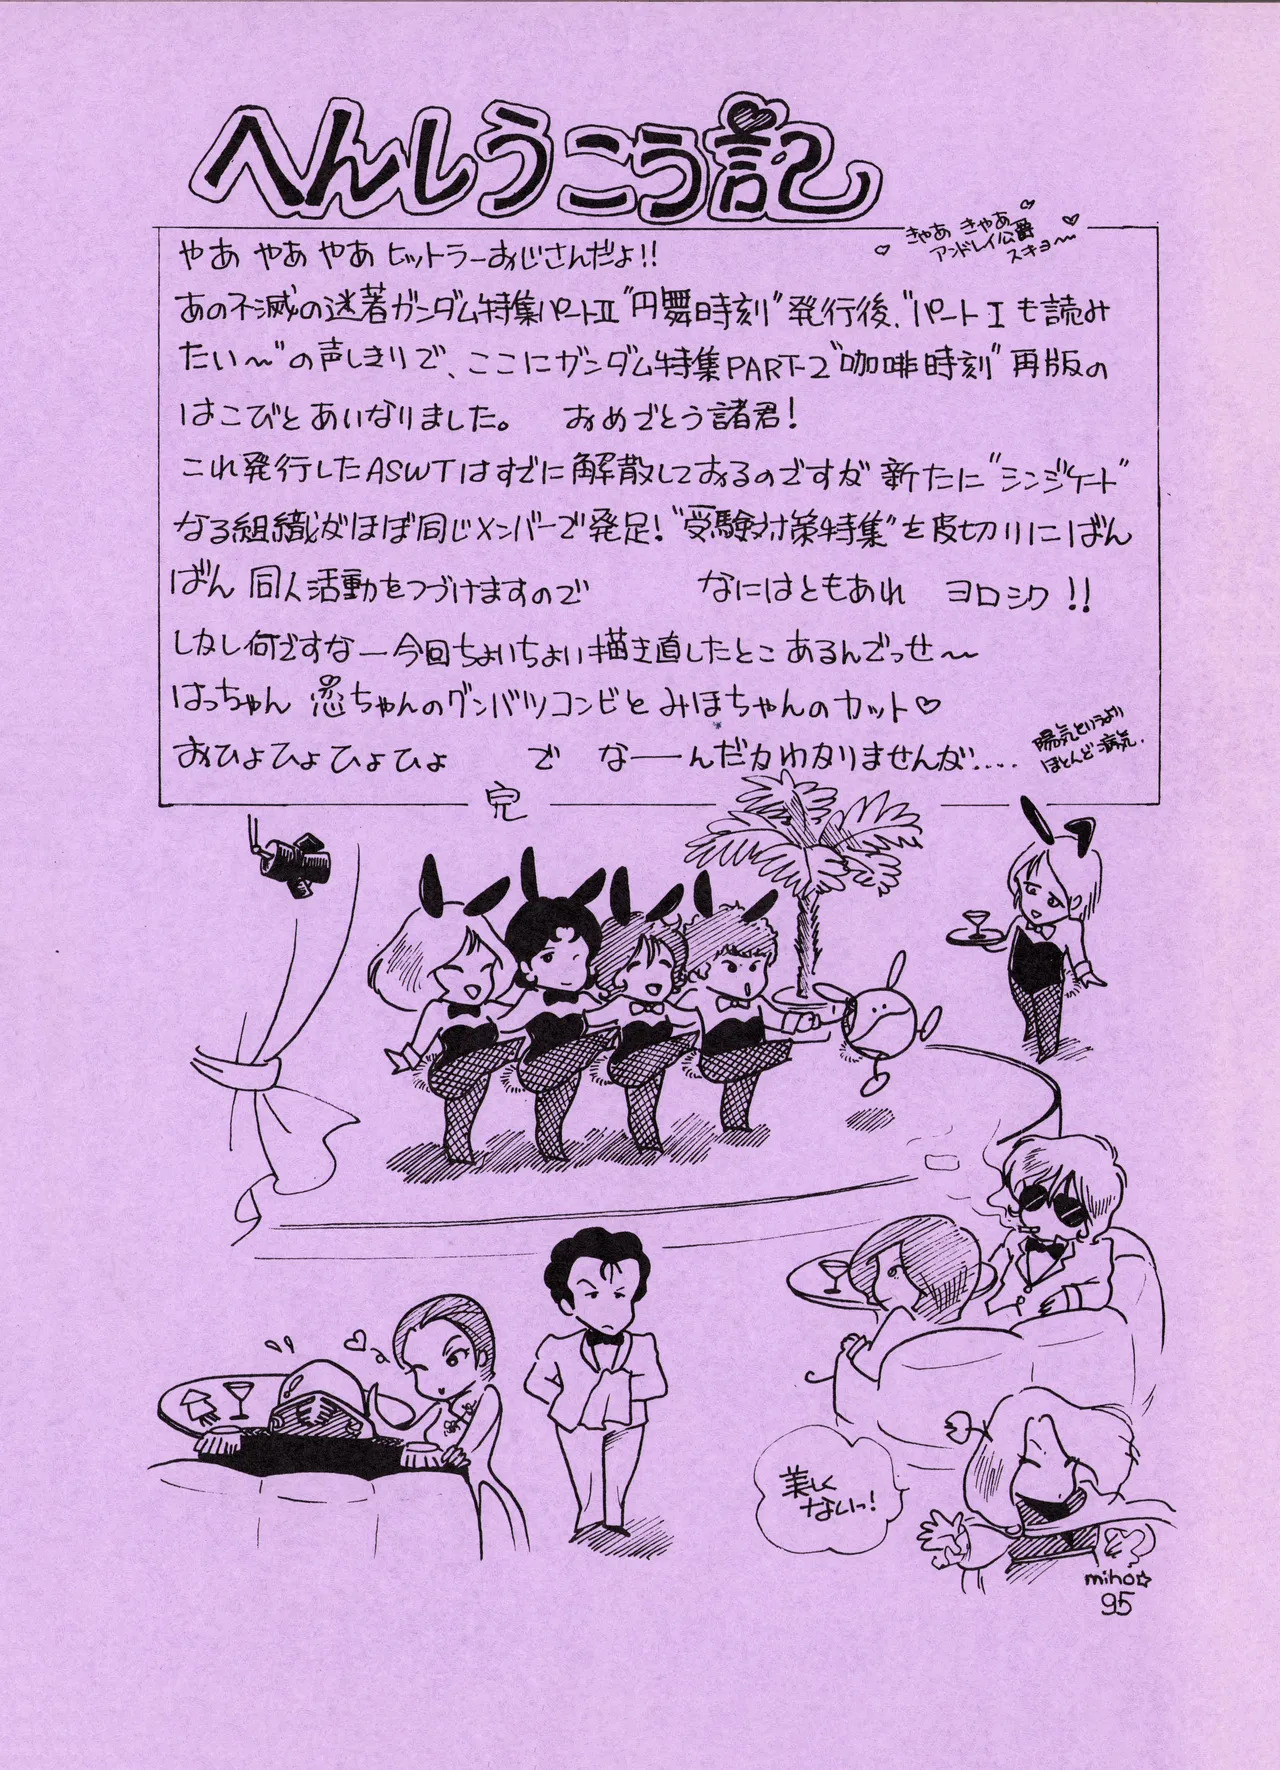 へんしうこう記
きゃあ きゃあ
アンドレイ公爵
スキョ〜
やあ やあ やあ ヒットラーおじさんだよ!!
あの不滅の迷著ガンダム特集パートII"円舞時刻"発行後、"パートIも読み
たい〜"の声しきりで、ここにガンダム特集PART-2"咖啡時刻"再版の
はこびとあいなりました。 おめでとう諸君!
これ発行したASWTはすでに解散しておるのですが 新たに"シンジケート"
なる組織がほぼ同じメンバーで発足!"受験対策特集"を皮切りにばん
ばん 同人活動をつづけますので なにはともあれ ヨロシク!!
しかし何ですなー今回ちょいちょい描き直したとこ あるんでっせ〜
はっちゃん 恋ちゃんのグンバツコンビと みほちゃんのカット♡
おひょひょひょひょ で な――んだかわかりませんが.....
陽気というより
ほとんど病気.
完
美しく
ないっ!
miho☆
95